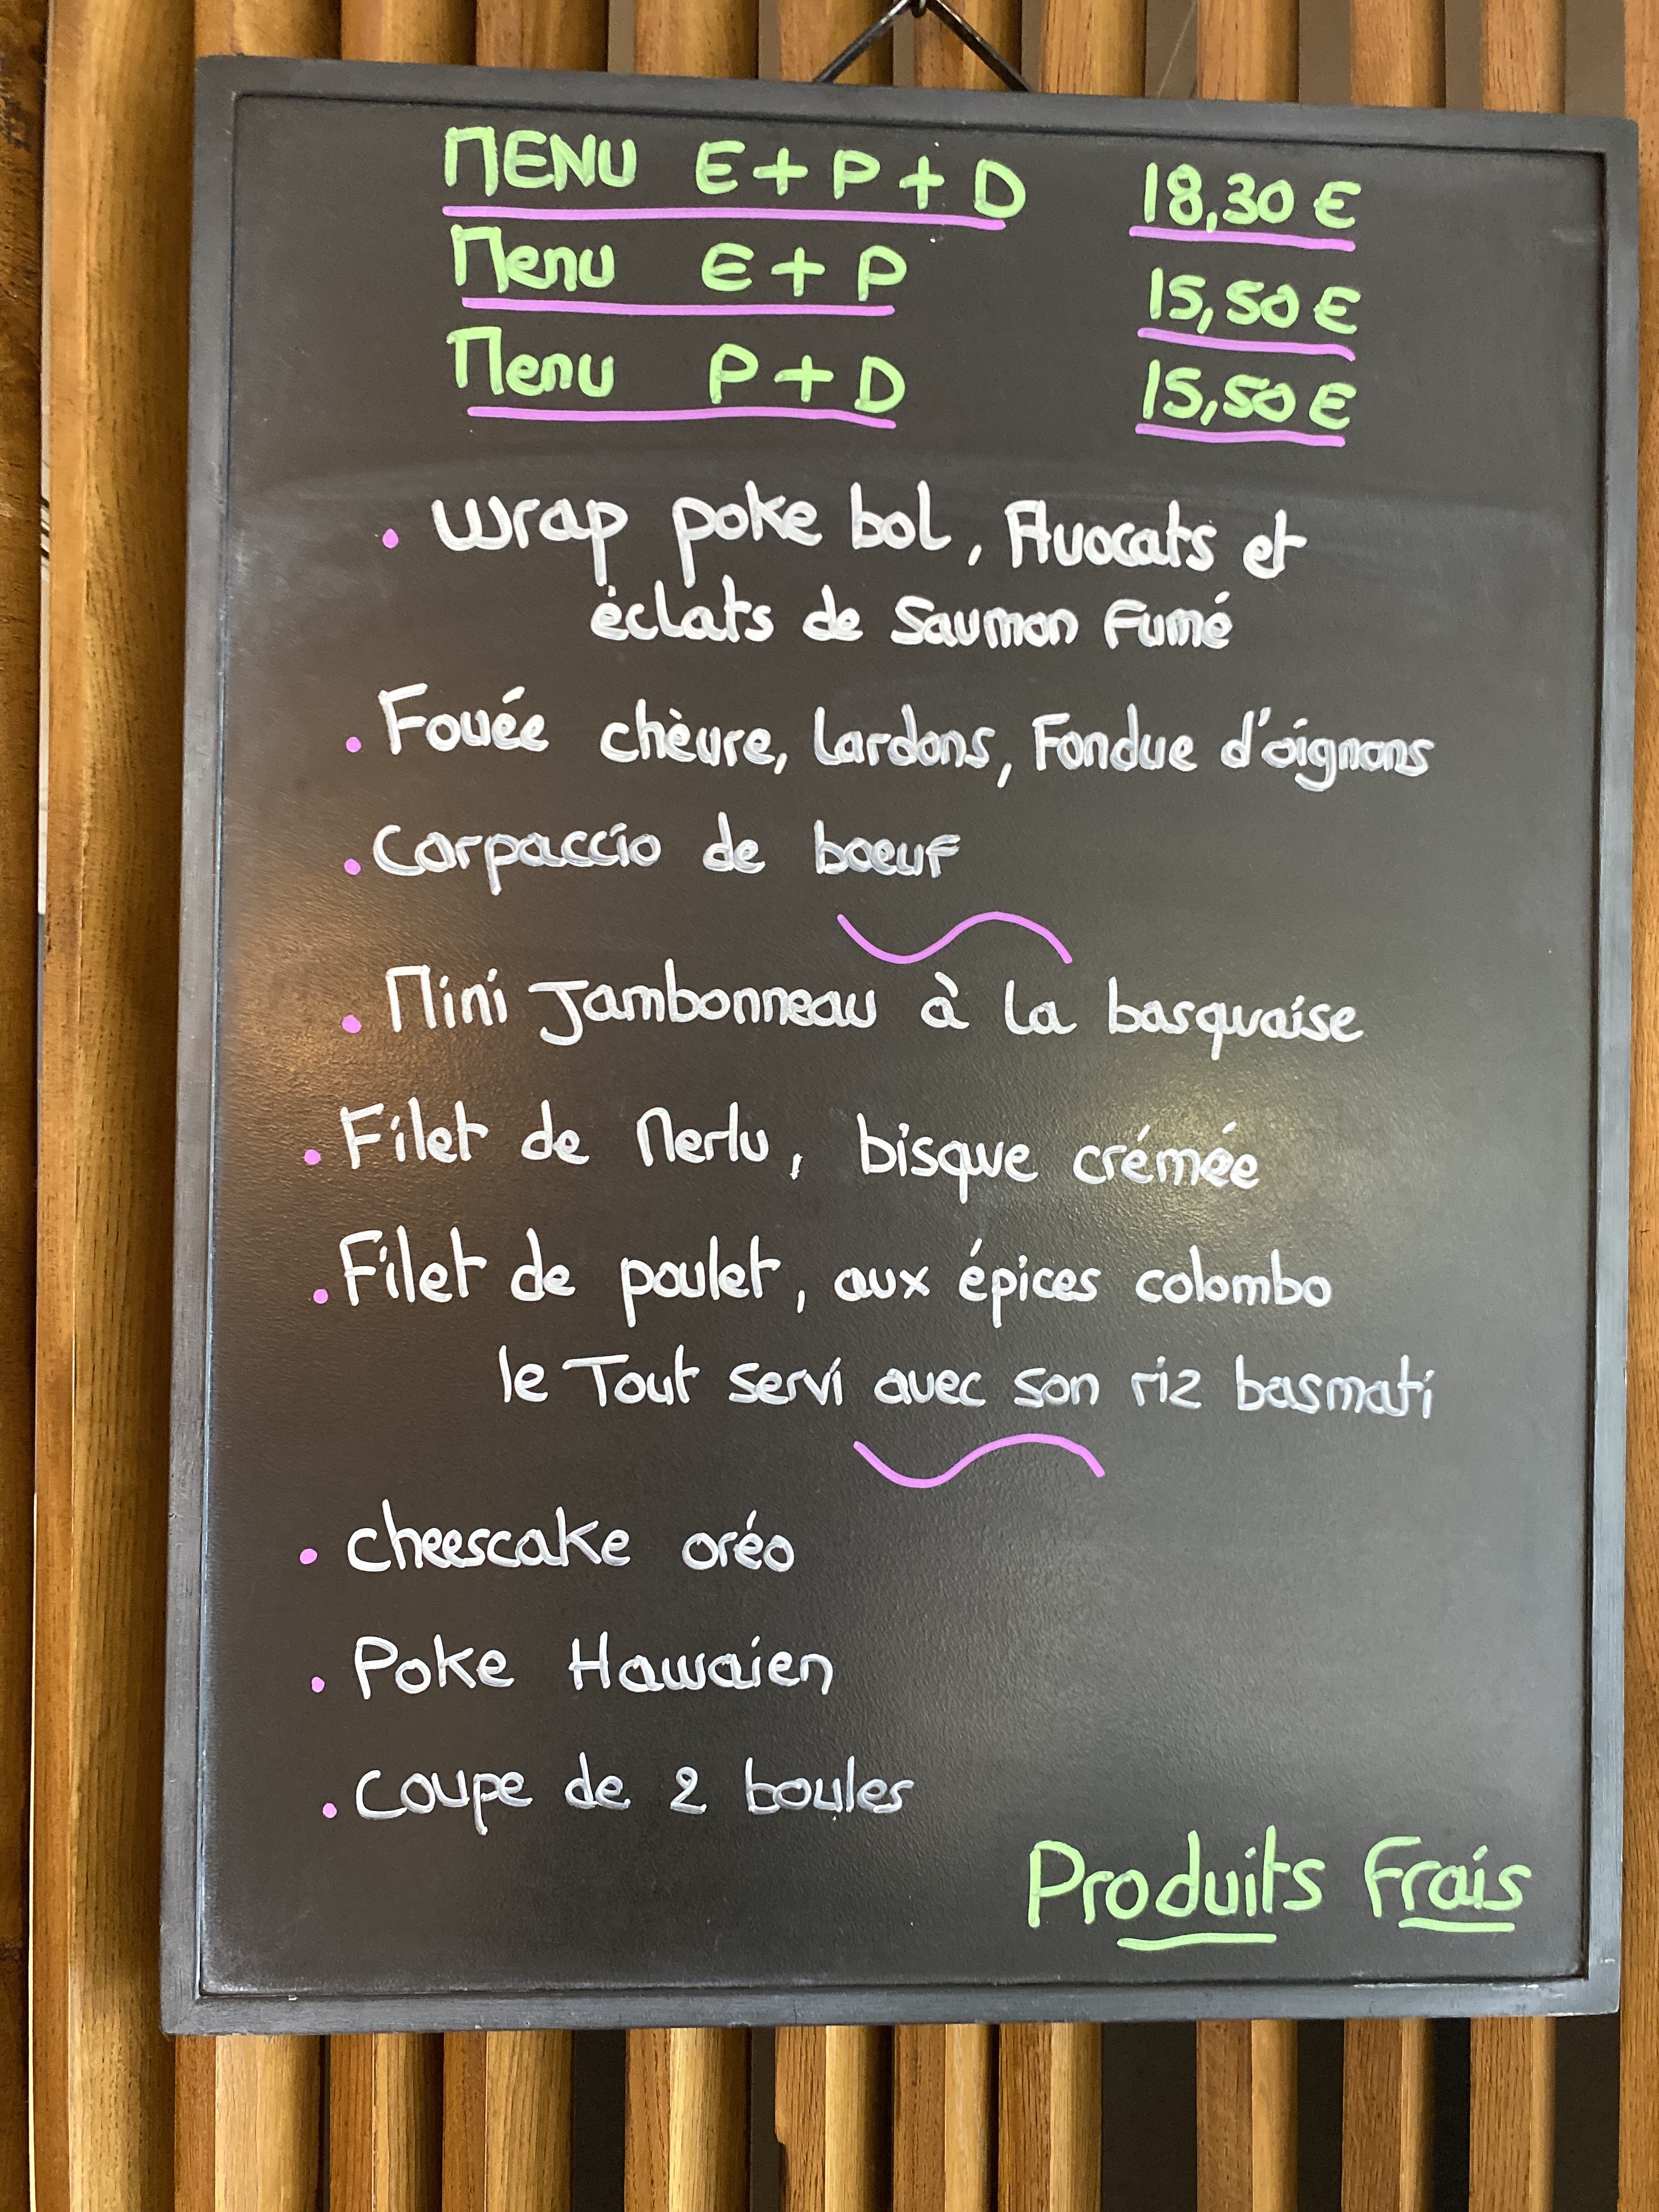 MENU E+P+D 18,30 €
Menu E+P 15,50 €
Menu P+D 15,50 €
. Wrap poke bol, Avocats et
éclats de Saumon Fumé
. Fouée chèvre, lardons, Fondue d'oignons
. Carpaccio de boeuf
. Mini Jambonneau à la basquaise
. Filet de Merlu, bisque crémée
. Filet de poulet, aux épices colombo
le Tout servi avec son riz basmati
. cheescake oréo
. Poke Hawaien
. Coupe de 2 boules
Produits Frais